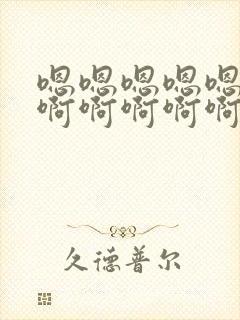 嗯嗯嗯嗯嗯
啊啊啊啊啊
久德普尔